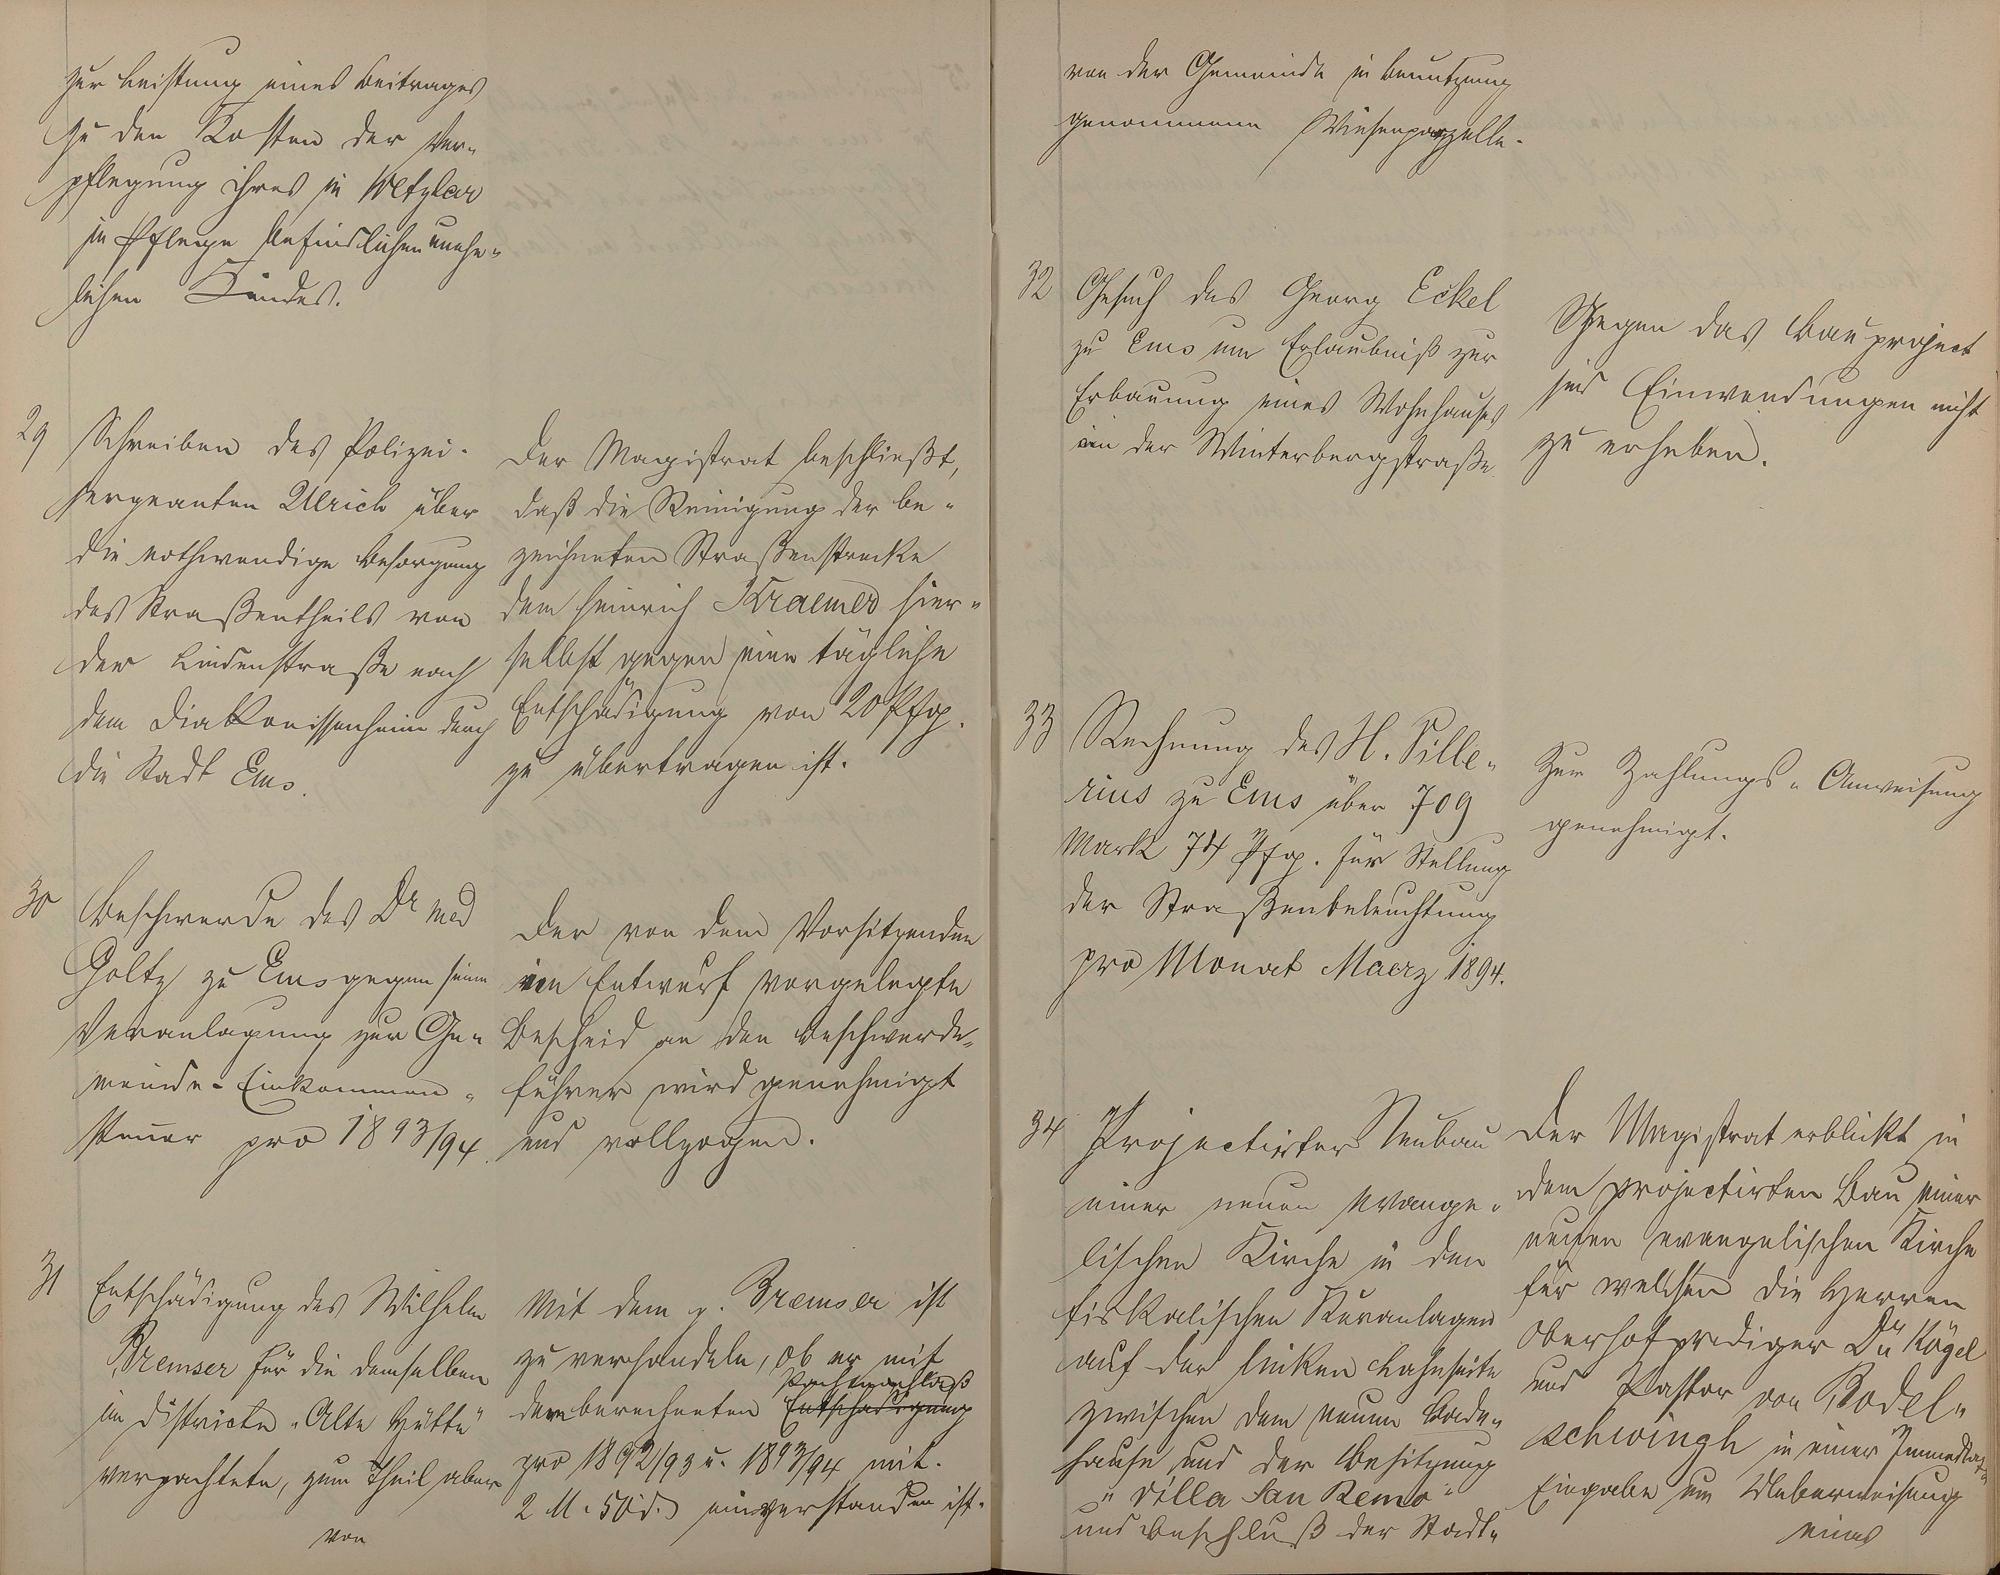 zur Leistung eines Beitrages
zu den Kosten der Ver-
pflegung ihres in Wetzlar
in Pflege befindlichen unehe-
lichen Kindes.
29
Schreiben des Polizei-
sergeanten Ulrich über
die nothwendige Besorgung
des Straßentheils von
der Lindenstraße nach
dem Diakonissenheim durch
die Stadt Ems.
Der Magistrat beschließt,
daß die Reinigung der be-
zeichneten Straßenstrecke
dem Heinrich Kraemer hier-
selbst gegen eine tägliche
Entschädigung von 20 Pfg.
zu übertragen ist.
30
Beschwerde des Dr med
Goltz zu Ems gegen seine
Veranlagung zur Ge-
meinde-Einkommen-
steuer pro 1893/94.
Der von dem Vorsitzenden
im Entwurf vorgelegte
Bescheid an den Beschwerde-
führer wird genehmigt
und vollzogen.
31
Entschädigung des Wilhelm
Bremser für die demselben
im Districte "Alte Hütte"
verpachtete, zum Theil aber
von
Mit dem p. Bremser ist
zu verhandeln, ob er mit
Pachtnachlaß
dem berechneten Entschädigung
pro 1892/93 u. 1893/94 mit
2 M. 50 d. einverstanden ist.
von der Gemeinde in Benutzung
genommene Wiesenparzelle.
32
Gesuch des Georg Eckel
zu Ems um Erlaubniß zur
Erbauung eines Wohnhauses
in der Winterbergstraße
Gegen das Bauproject
sind Einwendungen nicht
zu erheben.
33
Rechnung des H. Pille-
rius zu Ems über 709
Mark 74 Pfg. für Stellung
der Straßenbeleuchtung
pro Monat Maerz 1894.
Zur Zahlungs-Anweisung
genehmigt.
34
Projectirter Neubau
einer neuen evange-
lischen Kirche in den
fiskalischen Kuranlagen
auf der linken Lahnseite
zwischen dem neuen Bade-
hause und der Besitzung
"Villa San Remo"
und Beschluß der Stadt-
Der Magistrat erblickt in
dem projectirten Bau einer
neuen evangelischen Kirche
für welchen die Herren
Oberhofprediger Dr Kögel
und Pastor von Bodel-
schwingh in einer Immediat-
Eingabe um Ueberweisung
eines